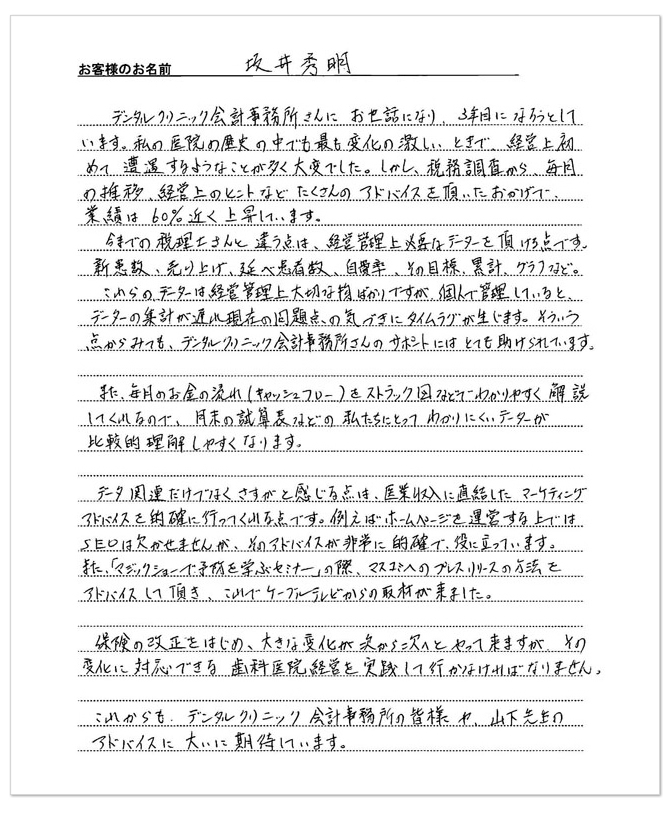 お客様のお名前 坂井秀明
デンタルクリニック会計事務所さんに お世話になり、3年目になろうとして
います。私の医院の歴史の中でも最も変化の激しいときで、経営上初
めて遭遇するようなことが多く大変でした。しかし、税務調査から、毎月
の推移、経営上のヒントなど たくさんの アドバイスを頂いたおかげで、
業績は 60%近く上昇しています。
今までの税理士さんと違う点は、経営管理上必要なデーターを頂ける点です。
新患数、売り上げ、延べ患者数、自費率、その目標、累計、グラフなど。
これらのデーターは経営管理上大切な物ばかりですが、個人で管理していると、
データーの集計が遅れ現在の問題点の気づきにタイムラグが生じます。そういう
点からみても、デンタルクリニック会計事務所さんのサポートにはとても助けられています。
また、毎月のお金の流れ(キャッシュフロー)をストラック図などでわかりやすく解説
してくれるので、月末の試算表などの私たちにとって わかりにくいデーターが
比較的理解しやすくなります。
データ関連だけでなくさすがと感じる点は、医業収入に直結したマーケティング
アドバイスを的確に行ってくれる点です。例えばホームページを運営する上では
SEOは欠かせませんが、そのアドバイスが非常に的確で、役に立っています。
また、「マジックショーで予防を学ぶセミナー」の際、マスコミへのプレスリリースの方法を
アドバイスして頂き、これでケーブルテレビからの取材が来ました。
保険の改正をはじめ、大きな変化が次から次へとやって来ますが、その
変化に対応できる 歯科医院経営を実践して行かなければなりません。
これからも、デンタルクリニック会計事務所の皆様や、山下先生の
アドバイスに大いに期待しています。